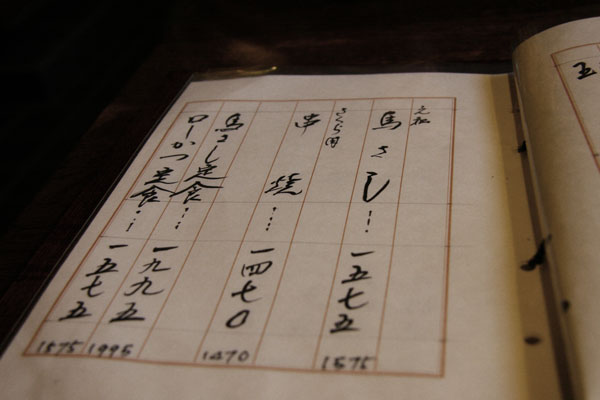 馬さし… 一五七五
1575
さくら肉
串焼… 一四七〇
1470
馬さし定食… 一九九五
1995
ローかつ定食… 一五七五
1575
五